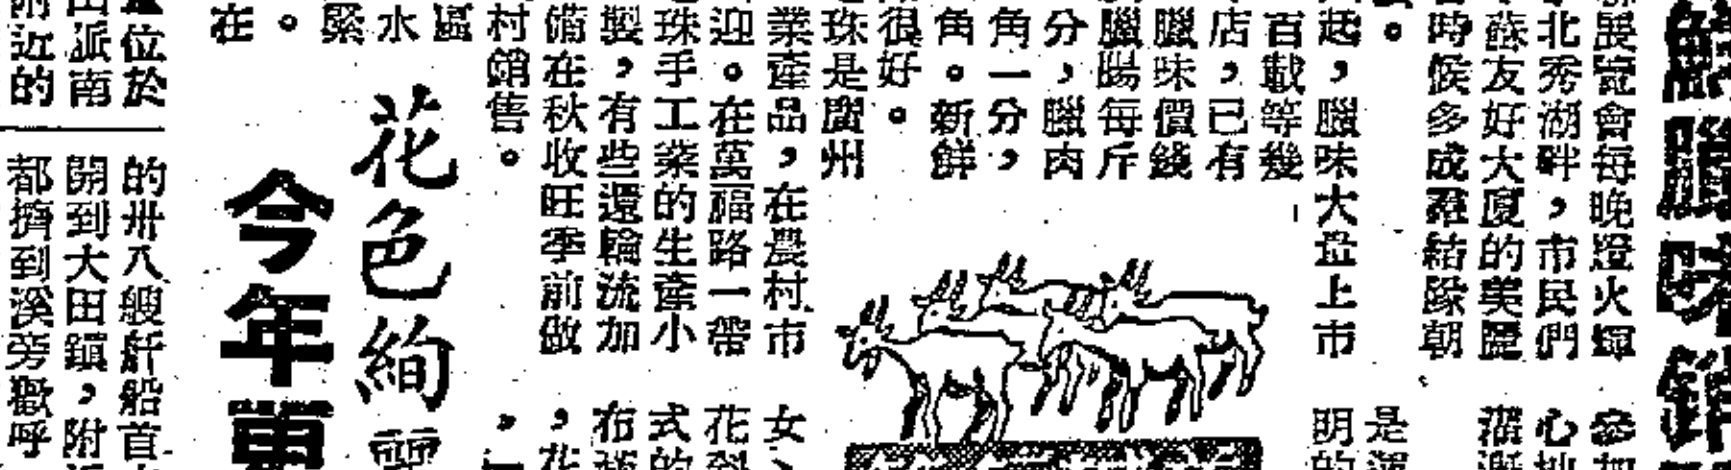 臘味
展覽會每晚燈火輝
北秀湖畔，市民們
蘇友好大廈的美麗
時候多成羣結隊朝
。
起，臘味大量上市
百載等幾
店，已有
臘味價錢
臘腸每斤
分，臘肉
角一分，
角。新鮮
很好。
珠是廣州
業產品，在農村市
迎。在萬福路一帶
珠手工業的生產小
製，有些還輪流加
備在秋收旺季前做
村銷售。
區
水
緊
。
在
心
是
明的
女、
花
式的
布
，花
，
花色絢
今年
位於
派南
近的
的卅八艘船首
開到大田鎮，附
都擠到溪旁歡呼